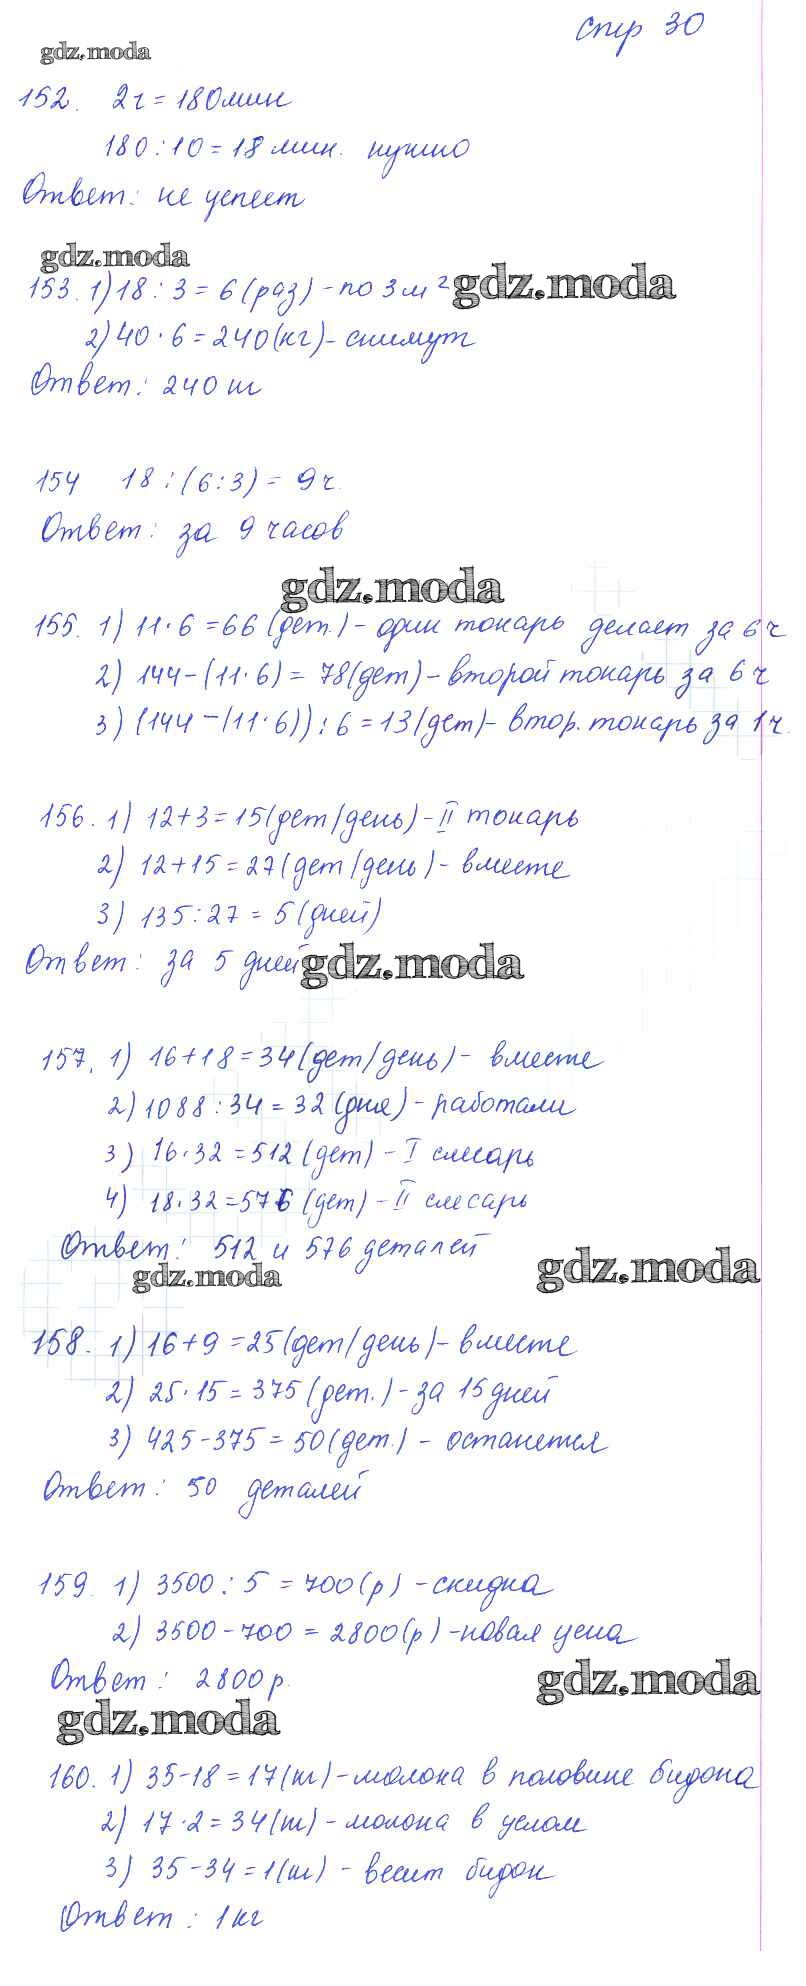 стр 30
gdz.moda
152. 2ч = 180мин
180:10=18 мин. нужно
Ответ: не успеет
gdz.moda
153. 1) 18 : 3 = 6 (раз) - по 3 м² gdz.moda
2) 40 · 6 = 240 (кг) - снимут
Ответ: 240 кг
154 18 : (6:3) = 9ч.
Ответ: за 9 часов
gdz.moda
155. 1) 11·6 = 66 (дет.) - один токарь делает за 6 ч
2) 144-(11·6) = 78(дет) - второй токарь за 6 ч
3) (144-(11·6)) : 6 = 13(дет) - втор. токарь за 1ч.
156. 1) 12+3=15(дет/день) - II токарь
2) 12+15=27(дет/день) - вместе
3) 135:27 = 5 (дней)
Ответ: за 5 дней gdz.moda
157. 1) 16+18=34(дет/день) - вместе
2) 1088:34 = 32 (дня) - работали
3) 16·32 = 512 (дет) - I слесарь
4) 18·32=576 (дет) - II слесарь
Ответ: 512 и 576 деталей
gdz.moda gdz.moda
158. 1) 16+9 =25(дет/день) - вместе
2) 25·15 = 375 (дет.) - за 15 дней
3) 425-375 = 50(дет.) - останется
Ответ: 50 деталей
159. 1) 3500 : 5 = 700(р) - скидка
2) 3500-700 = 2800(р) - новая цена
Ответ: 2800р. gdz.moda
gdz.moda
160. 1) 35-18 = 17(кг) - молока в половине бидона
2) 17·2=34(кг) - молока в целом
3) 35-34=1(кг) - весит бидон
Ответ: 1кг